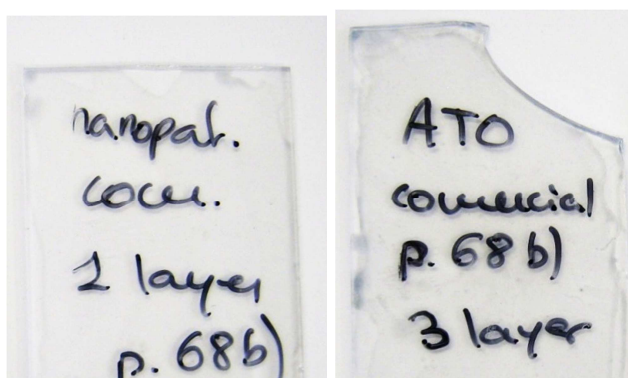 nanopat.
com.
1 layer
p. 68b)
ATO
comercial
p. 68b)
3 layer